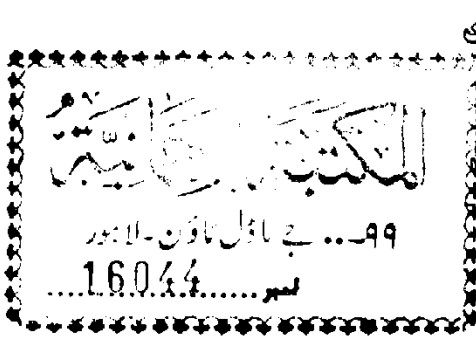 المكتبة الرحمانية
۹۹... جے ماڈل ٹاؤن۔لاہور
نمبر......16044....